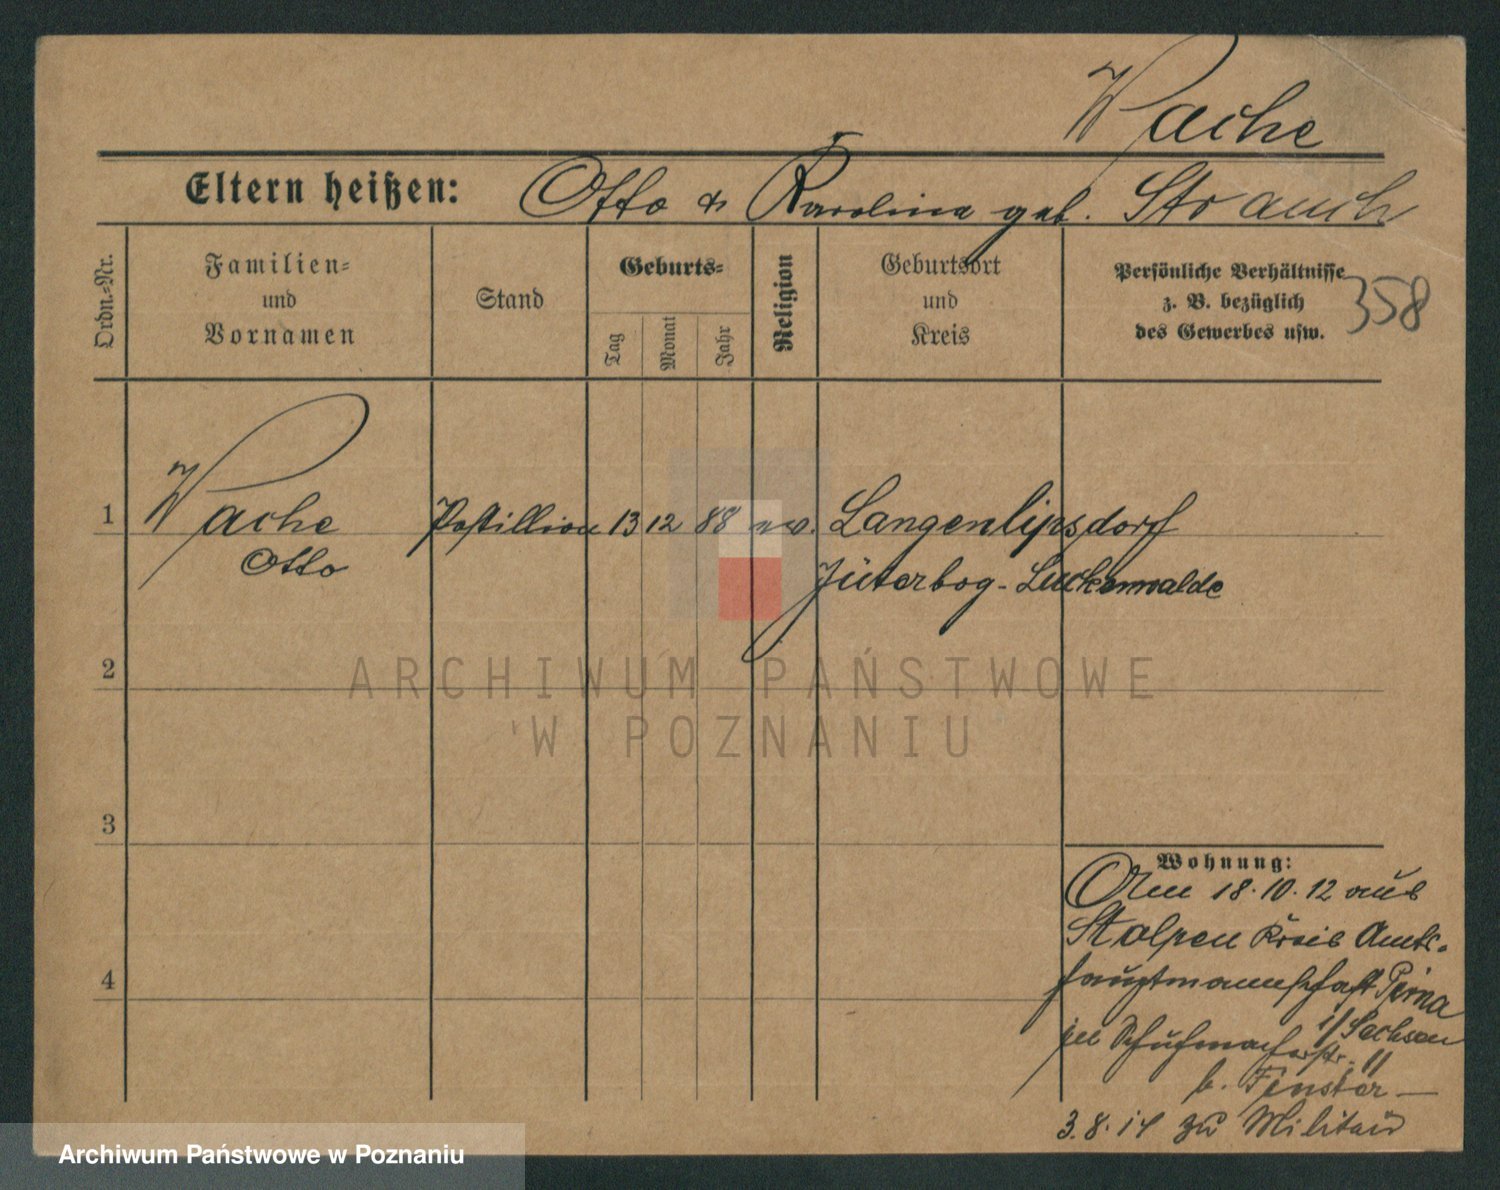 Wache
Eltern heißen: Otto & Karolina geb. Strauch
Ordn.=Nr.
Familien=
und
Vornamen
Stand
Geburts=
Tag
Monat
Jahr
Religion
Geburtsort
und
Kreis
Persönliche Verhältnisse
z. B. bezüglich
des Gewerbes usw.
358
1 Wache Postillion 13 12 88 ev. Langenlipsdorf
Otto Jüterbog-Luckenwalde
2
3
4
Wohnung:
Am 18.10.12 aus
Stolpen Kreis Amts-
hauptmannschaft Pirna
i/Sachsen
in Schuhmacherstr. 11
b. Fenster
3.8.14 zu Militair
ARCHIWUM PAŃSTWOWE
W POZNANIU
Archiwum Państwowe w Poznaniu